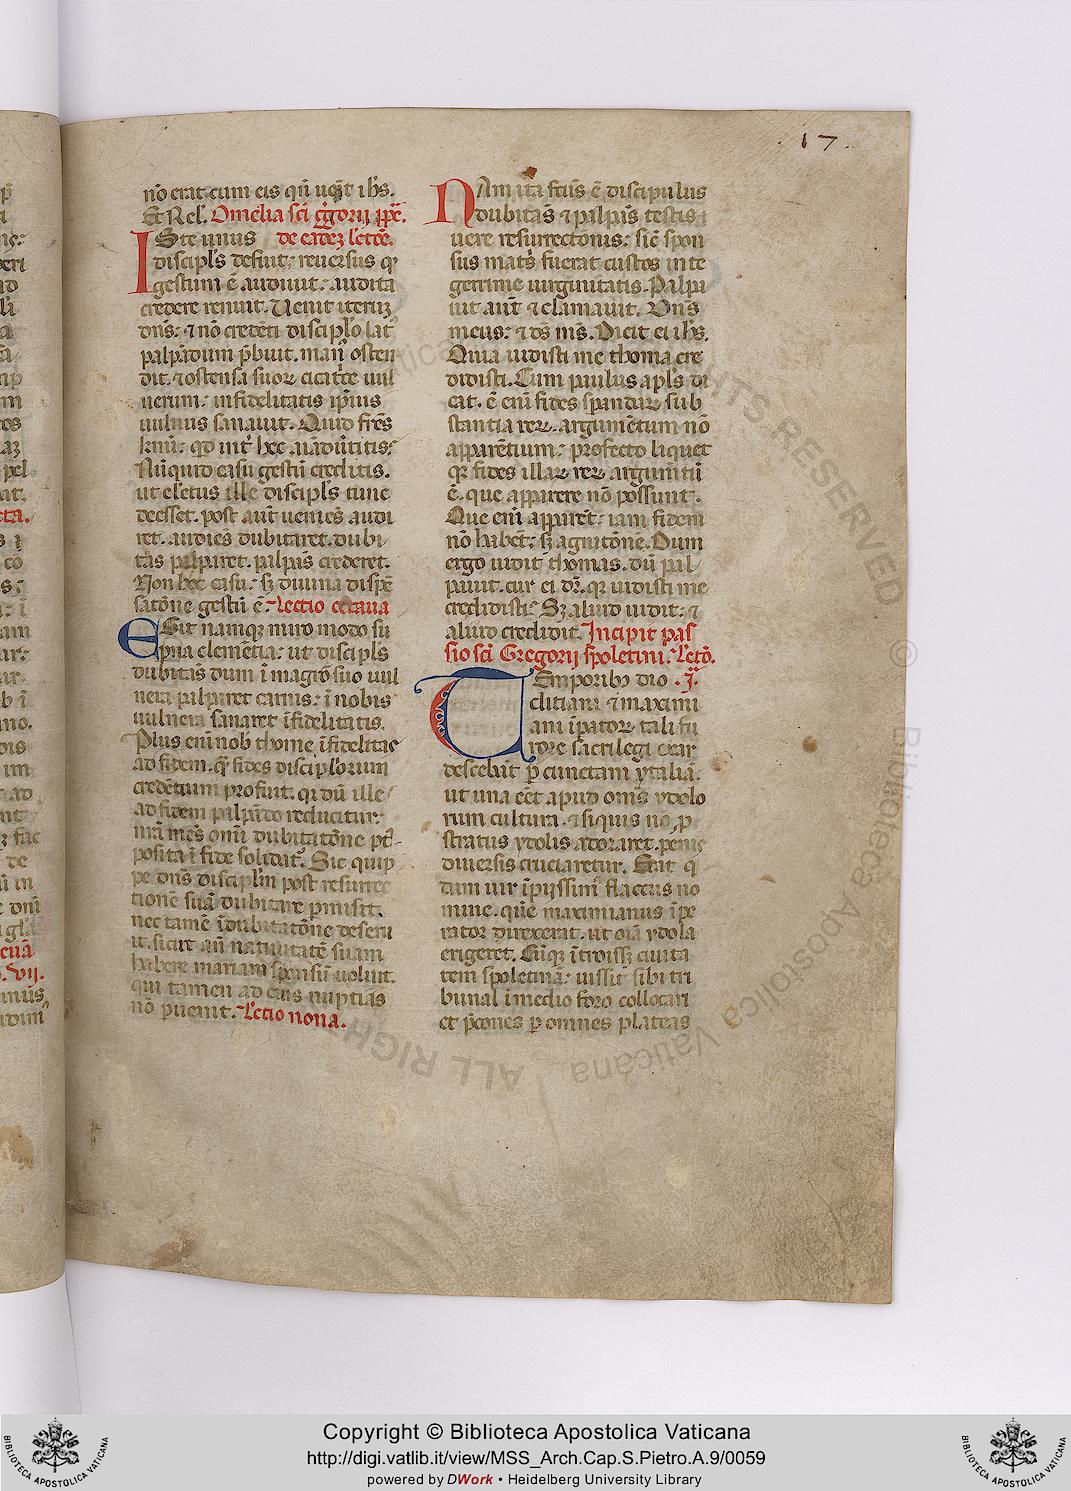 17.
nō erat cum eis qn̄ uēit ihs̄.
Et Rel̄. Omelia sc̄i ḡgorij pp̄e.
Iste unus de eadē lectōe.
discipl's defuit: reuersus qd̄
gestum ē audiuit: audita
credere renuit. Uenit iterum
dn̄s: ⁊ nō credēti discip̄lo lat'
palpādum p̄buit. man' osten
dit. ⁊ ostensa suoꝝ cicat'ce uul
nerum: infidelitatis ip̄ius
uulnus sanauit. Quid fr̄es
km̄i: qd̄ int' hec aīaduūtitis:
Nūquid casu gestū creditis.
ut eletus ille discipl's tunc
deesset. post aūt ueniēs audi
ret. audiēs dubitaret. dubi
tās palparet. palpās crederet.
Non hec casu: sꝫ diuina dispē
satōne gestū ē. Lectio octaua
Egit namqꝫ miro modo su
pna clemētia: ut discipl's
dubitās dum ī magrō suo uul
nera palparet carnis: ī nobis
uulnera sanaret īfidelitatis.
Plus eni nob' thome īfidelitas
ad fidem. q̄ fides discip̄lorum
credētium profuit. qꝛ dū ille
ad fidem palpādo reducitur:
nrā mēs omni dubitatōne pt'
posita ī fide solidat'. Sic quip
pe dn̄s discip̄lm post resurrec
tionē suā dubitare p̄misit.
nec tamē ī dubitatōne deseru
it. sicut an̄ natiuitatē suam
habere mariam sponsū uoluit.
qui tamen ad eius nuptias
nō puenit. Lectio nona.
Nam ita fact̄s ē discipulus
dubitās ⁊ palpās testis
uere resurrectonis: sic̄ spon
sus mat's fuerat custos inte
gerrime uirginitatis. Palpa
uit aūt ⁊ clamauit. Dn̄s
meus: ⁊ ds̄ ms̄. Dicit ei ihs̄.
Quia uidisti me thoma cre
didisti. Cum paulus apl's di
cat. ē eni fides sperandaꝝ sub
stantia reꝝ. argumētum nō
apparētium: profecto liquet
qꝛ fides illaꝝ reꝝ argum̄tū
ē. que apparere nō possunt.
Que eni apparēt: iam fidem
nō habēt: sꝫ agnitōnē. Dum
ergo uidit thomas. dū pal
pauit. cur ei dr̄. qꝛ uidisti me
credidisti: Sꝫ aliud uidit: ⁊
aliud credidit. Incipit pas
sio sc̄i Gregorij spoletini. Lectō.
Temporibꝫ dio .j.
clitiani ⁊ maximi
ani īpatoꝝ tali fu
rore sacrilegi exar
descebāt p cunctam ytaliā.
ut una eēt apud omīs ydolo
rum cultura. ⁊ siquis nō p
stratus ydolis adoraret. penis
diuersis cruciaretur. Erat q̄
dam uir īpijssim' flaccus no
mine. quē maximianus īpe
rator direxerat. ut oīa ydola
erigeret. Cūqꝫ ītroissꝫ ciuita
tem spoletinā: iussit sibi tri
bunal ī medio foro collocari
et p̄cones p omnes plateas
Copyright © Biblioteca Apostolica Vaticana
http://digi.vatlib.it/view/MSS_Arch.Cap.S.Pietro.A.9/0059
powered by DWork • Heidelberg University Library
BIBLIOTECA APOSTOLICA VATICANA
BIBLIOTECA APOSTOLICA VATICANA